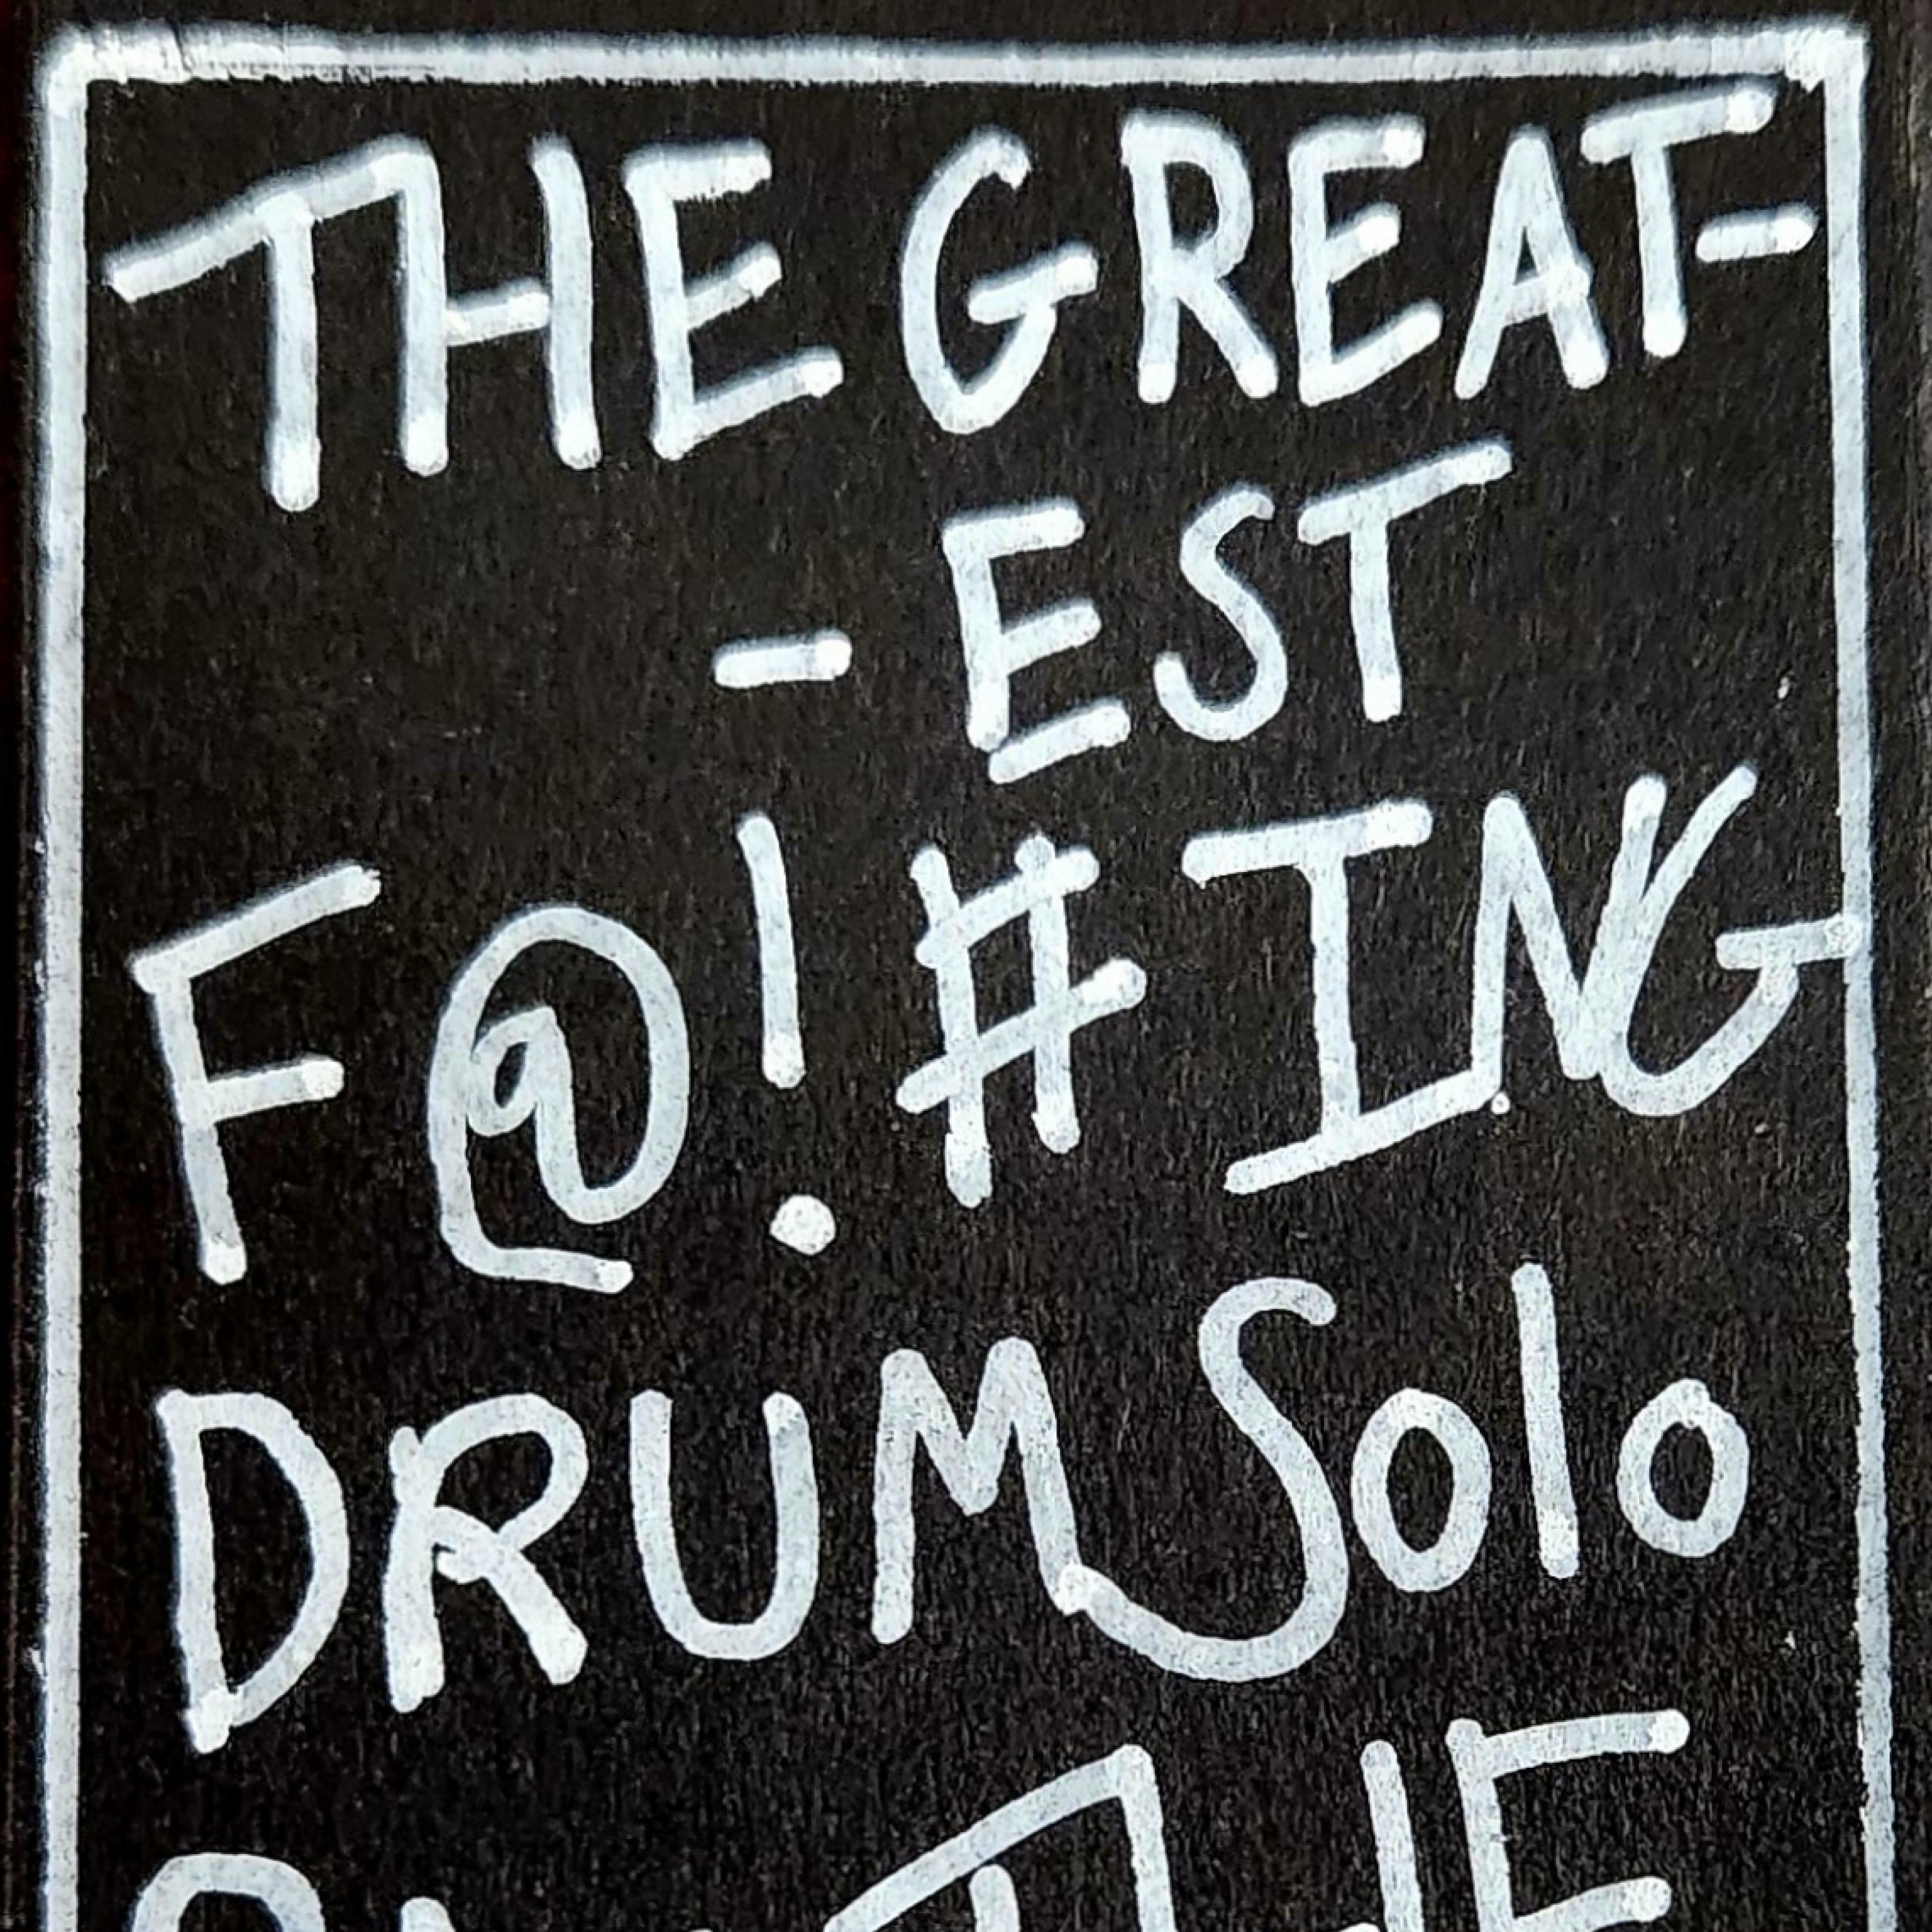 THE GREAT-
- EST
F@!#ING
DRUM Solo
THE